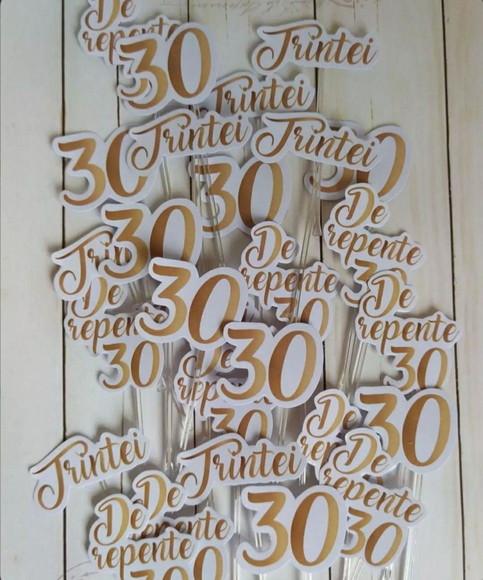 De
repente
30
Trintei
Trintei
Trintei
Trintei
30
30
30
30
De
repente
30
De
repente
30
Trin
De
repen
30
30
De
repente
30
De
rep
30
30
De
re
30
De
repente
30
Trintei
Trintei
De
De
repente
repente
30
30
30